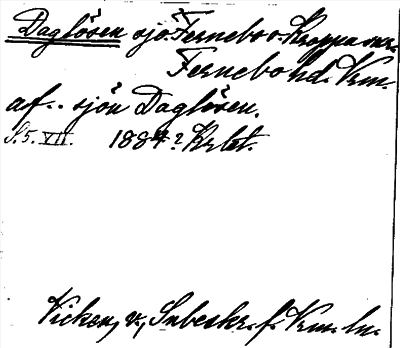 Daglösen sjö. Fernebo o. Kroppa snr.
Fernebo hd. Vrm.
af.. sjön Daglösen.
S. 5. VII. 1884? Krlst.
Vicken, v., Inbeskr. f. Vrm. ln.